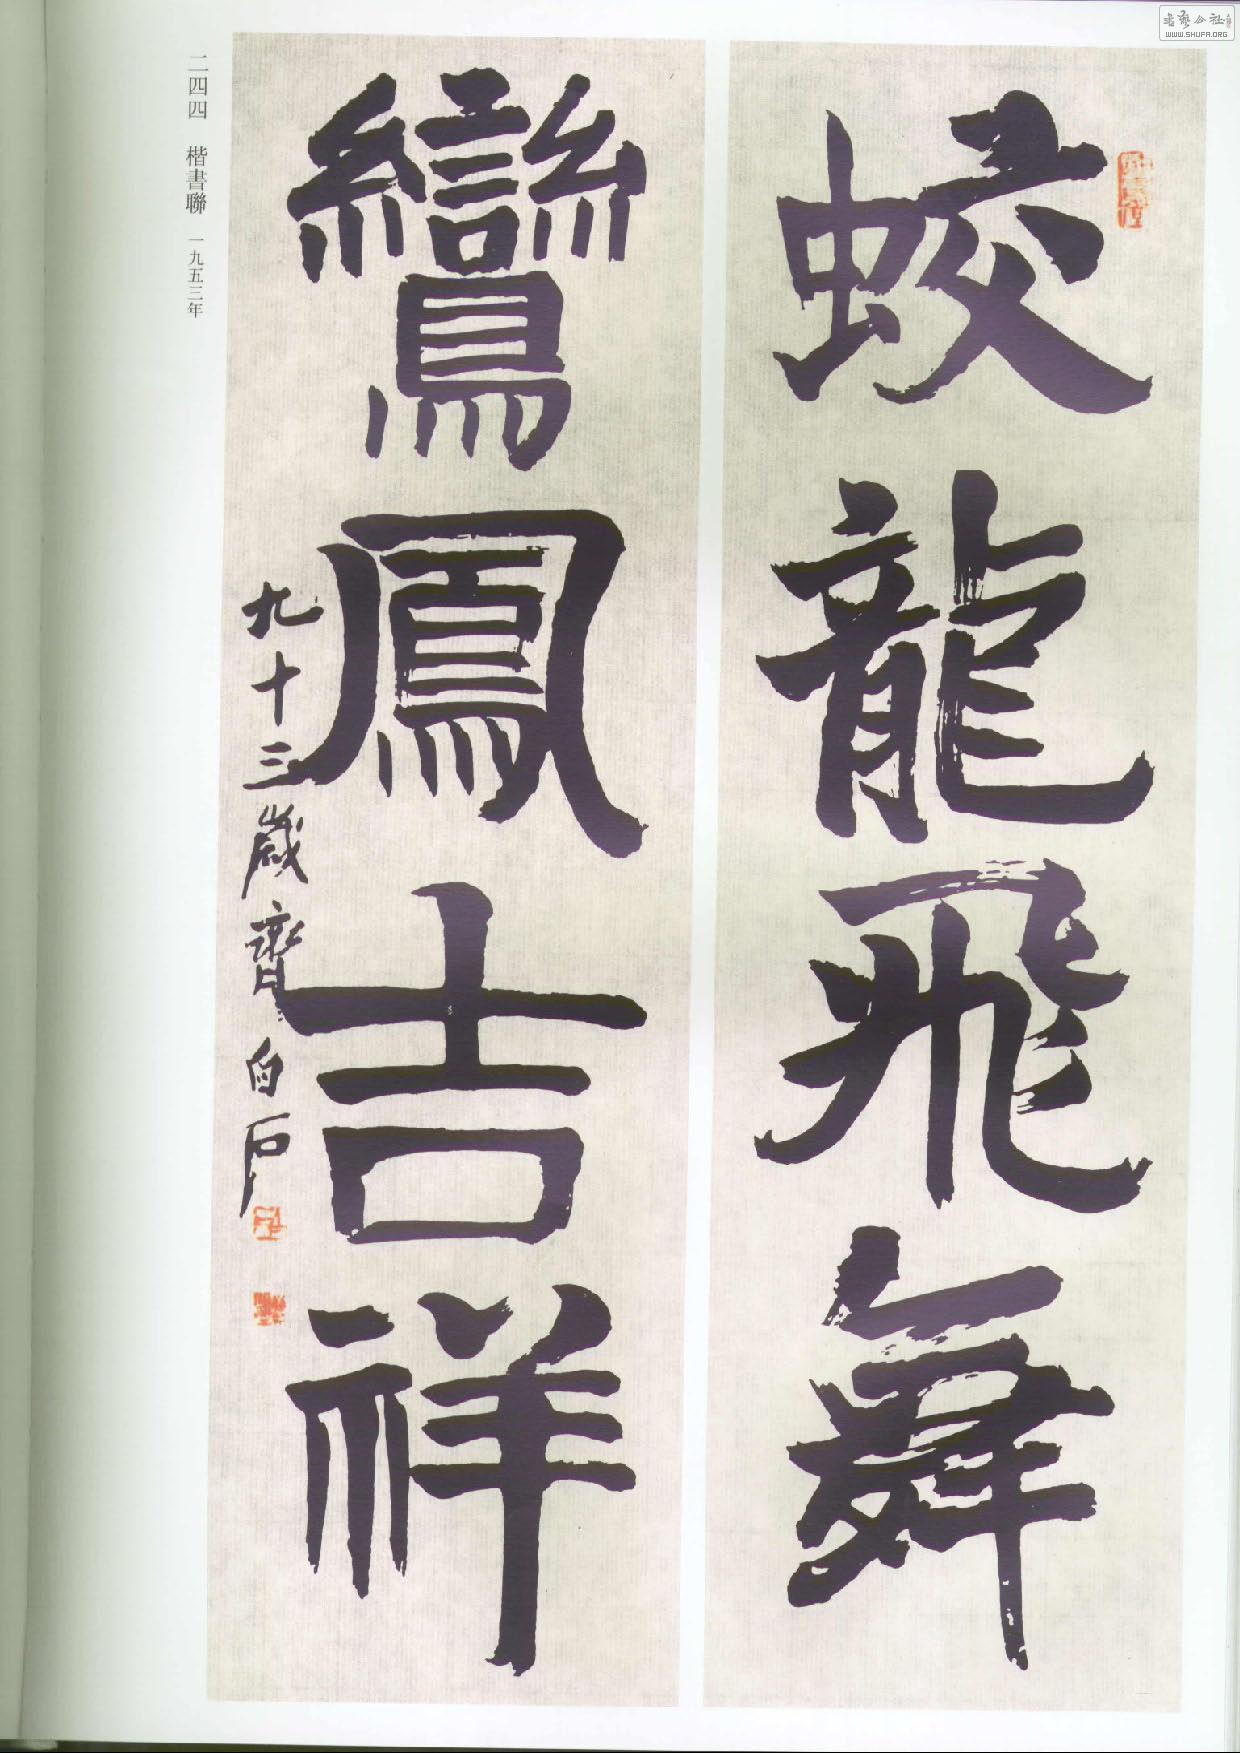 蛟龍飛舞
鸞鳳吉祥
九十三歲齊白石
二四四 楷書聯 一九五三年
WWW.SHUFA.ORG